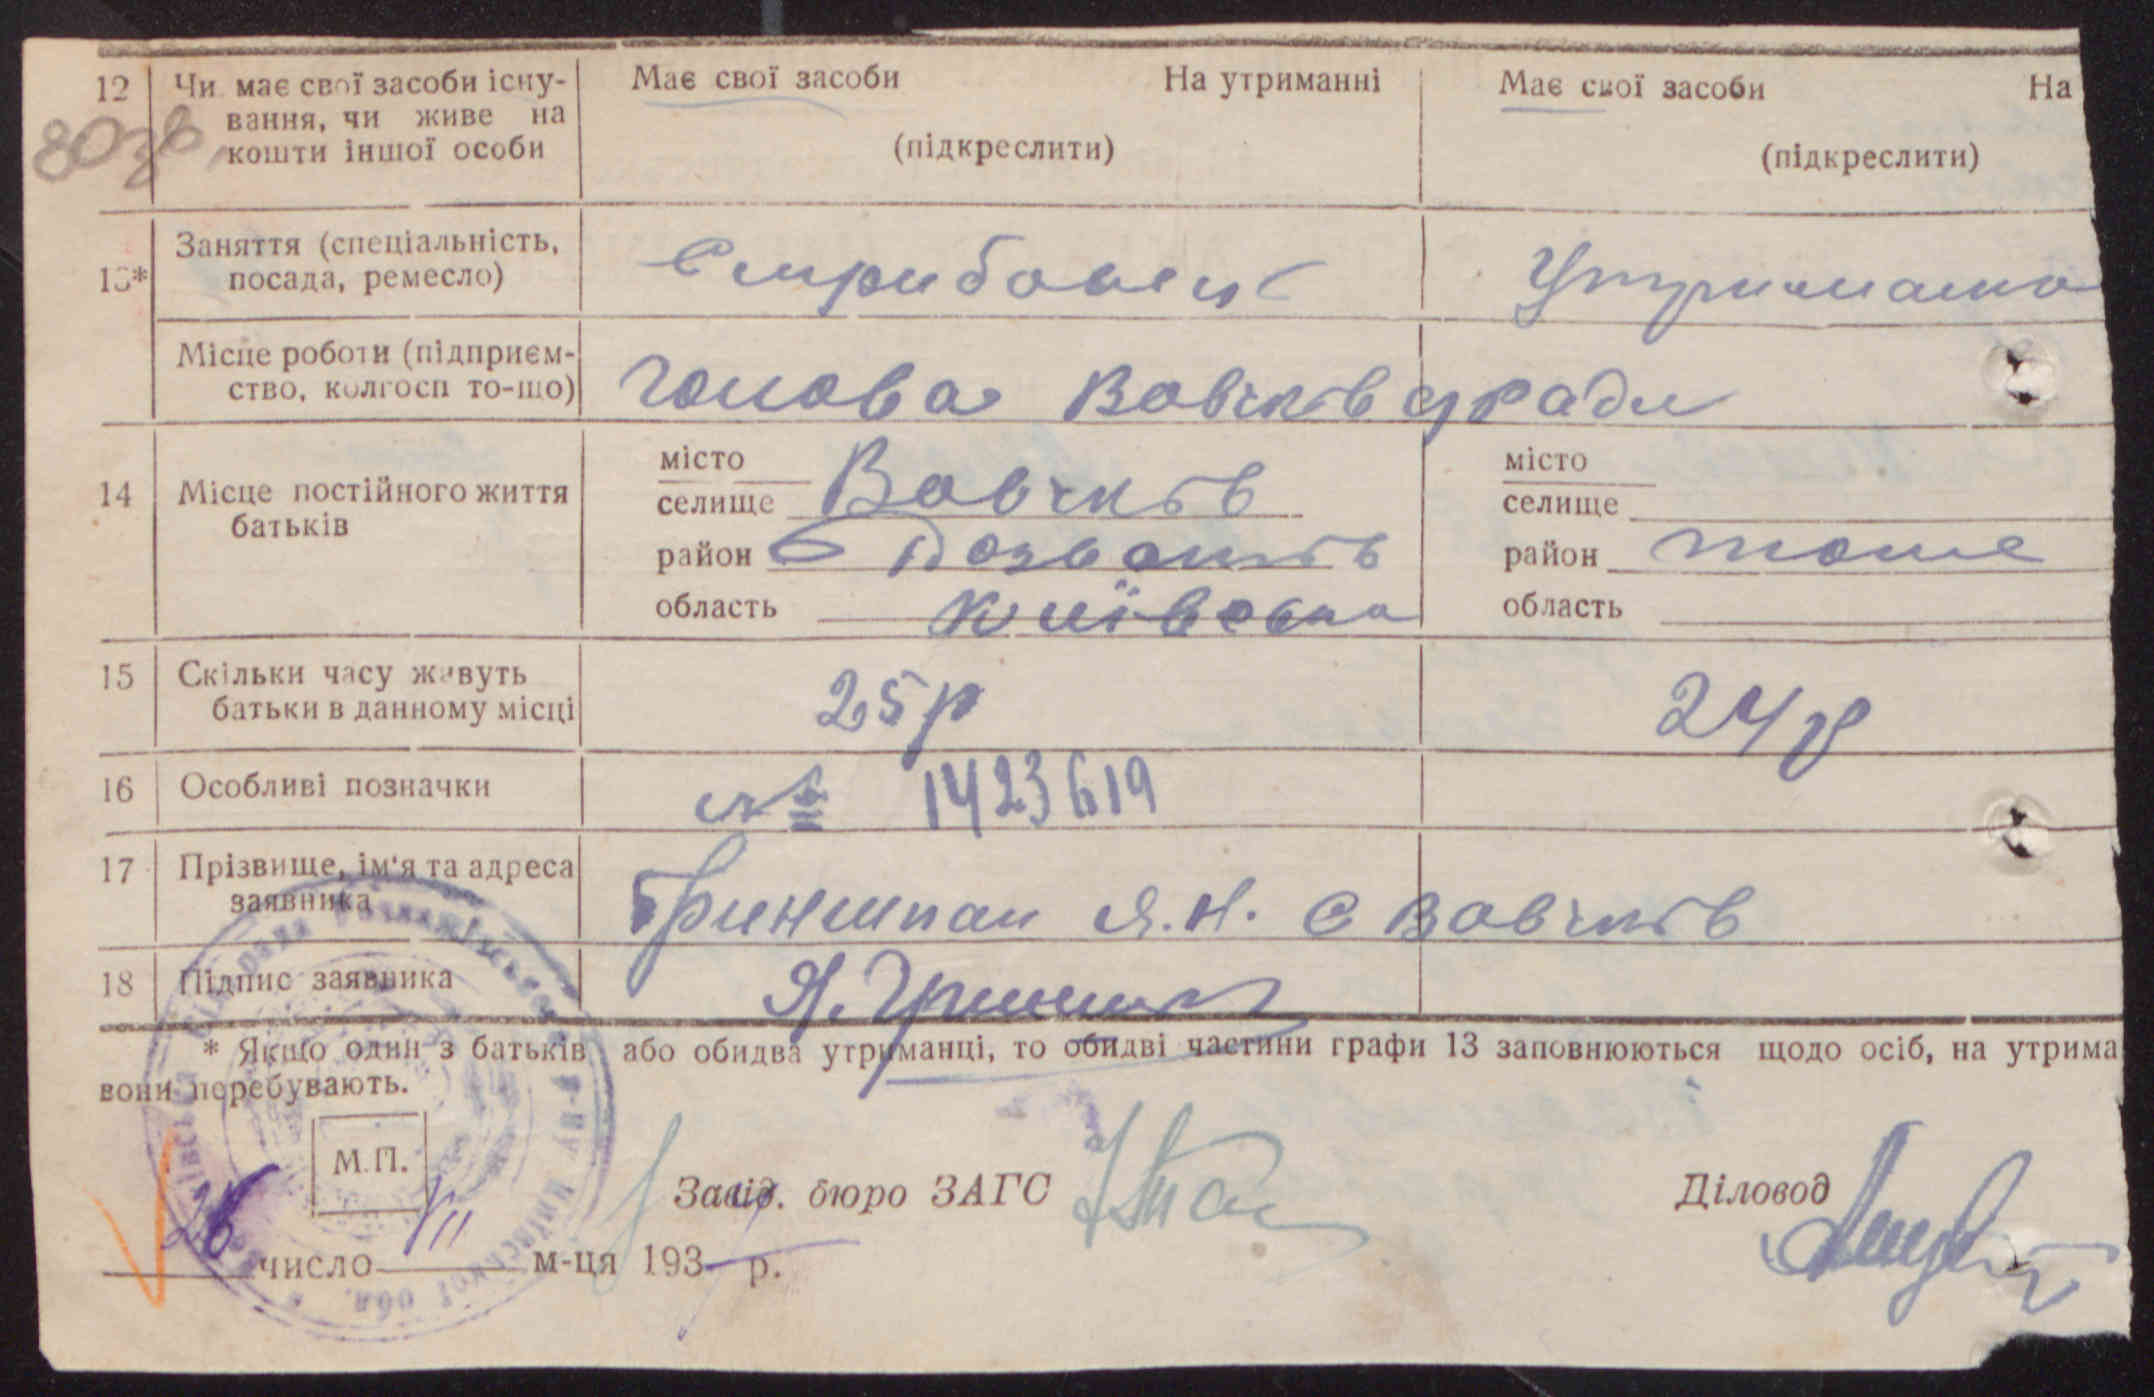 12 Чи має свої засоби існу- Має свої засоби На утриманні Має свої засоби На
вання, чи живе на
кошти іншої особи (підкреслити) (підкреслити)
13* Заняття (спеціальність,
посада, ремесло) Утриманка
Місце роботи (підприєм-
ство, колгосп то-що) голова Вовчків с/ради
14 Місце постійного життя
батьків
місто місто
селище Вовчків селище
район Розважів район тоже
область Київська область
15 Скільки часу живуть
батьки в данному місці 25р 24р
16 Особливі позначки № 1423619
17 Прізвище, ім'я та адреса
заявника Гриншпан Я.Н. с Вовчків
18 Підпис заявника Я. Гриншпан
* Якщо один з батьків або обидва утриманці, то обидві частини графи 13 заповнюються щодо осіб, на утрима
вони перебувають.
М.П.
Завід. бюро ЗАГС Діловод
26 число VII м-ця 193 р.